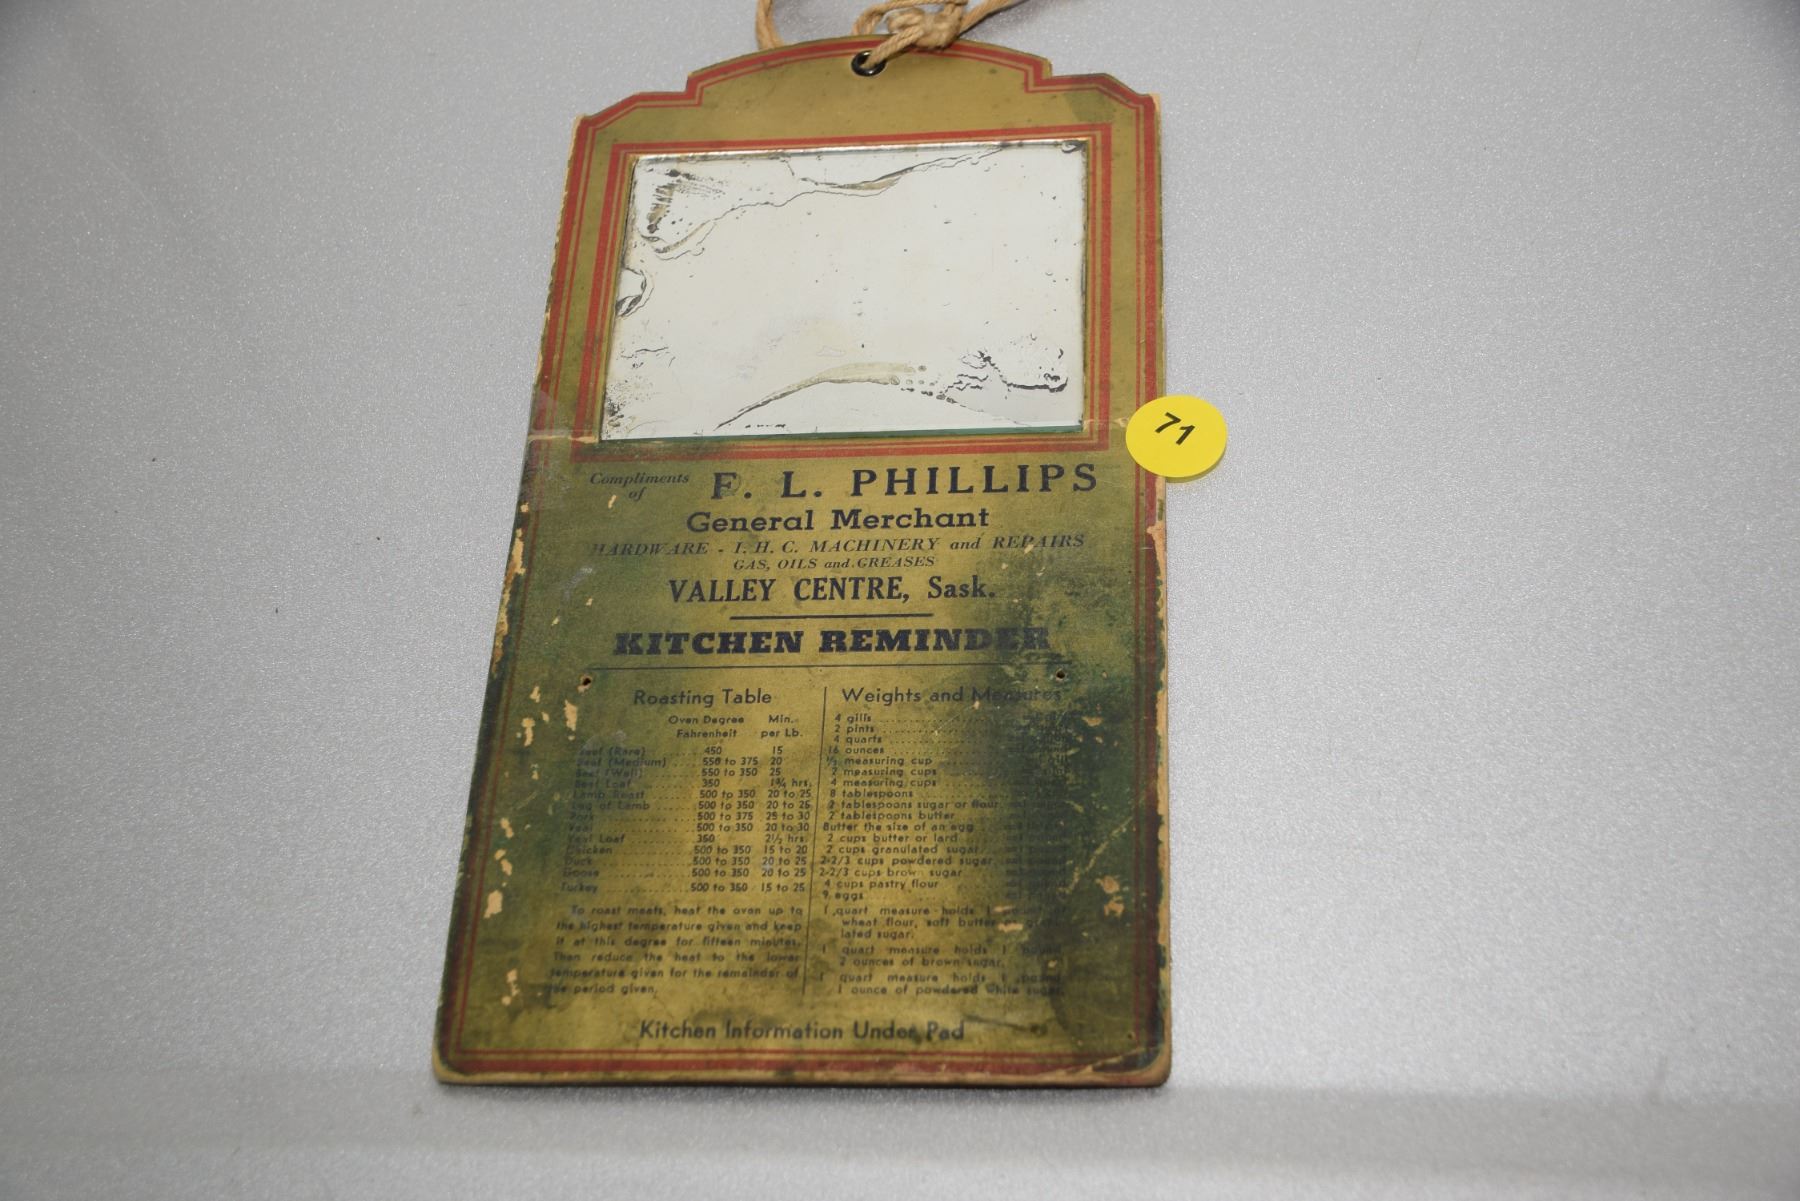 71
Compliments of F. L. PHILLIPS
General Merchant
HARDWARE - I. H. C. MACHINERY and REPAIRS
GAS, OILS and GREASES
VALLEY CENTRE, Sask.
KITCHEN REMINDER
Roasting Table
Oven Degree Min.
Fahrenheit per Lb.
Beef (Rare) 450 15
Beef (Medium) 550 to 375 20
Beef (Well) 550 to 350 25
Beef Loaf 350 1¾ hrs.
Lamb Roast 500 to 350 20 to 25
Leg of Lamb 500 to 350 20 to 25
Pork 500 to 375 25 to 30
Veal 500 to 350 20 to 30
Veal Loaf 350 2½ hrs.
Chicken 500 to 350 15 to 20
Duck 500 to 350 20 to 25
Goose 500 to 350 20 to 25
Turkey 500 to 350 15 to 25
To roast meats, heat the oven up to
the highest temperature given and keep
it at this degree for fifteen minutes.
Then reduce the heat to the lower
temperature given for the remainder of
the period given.
Weights and Measures
4 gills
2 pints
4 quarts
16 ounces
½ measuring cup
2 measuring cups
4 measuring cups
8 tablespoons
2 tablespoons sugar or flour
2 tablespoons butter
Butter the size of an egg
2 cups butter or lard
2 cups granulated sugar
2-2/3 cups powdered sugar
2-2/3 cups brown sugar
4 cups pastry flour
9 eggs
1 quart measure holds 1 pound of
wheat flour, soft butter or granu-
lated sugar.
1 quart measure holds 1 pound
2 ounces of brown sugar.
1 quart measure holds 1 pound
1 ounce of powdered white sugar.
Kitchen Information Under Pad